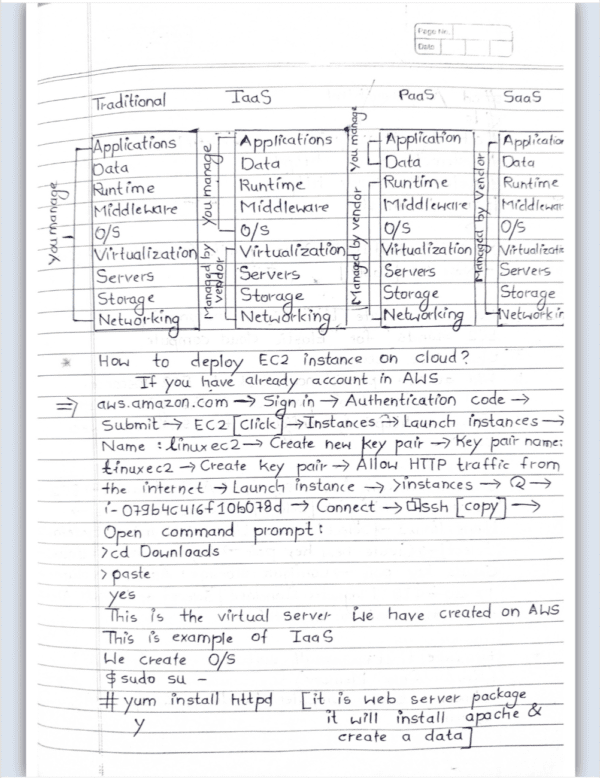 Page No.
Date
Traditional IaaS PaaS SaaS
You manage
Applications
Data
Runtime
Middleware
O/S
Virtualization
Servers
Storage
Networking
You manage
Managed by vendor
Applications
Data
Runtime
Middleware
O/S
Virtualization
Servers
Storage
Networking
You manage
Managed by vendor
Application
Data
Runtime
Middleware
O/S
Virtualization
Servers
Storage
Networking
Managed by Vendor
Applicatior
Data
Runtime
Middlewar
O/S
Virtualizatic
Servers
Storage
Networkir
* How to deploy EC2 instance on cloud?
If you have already account in AWS
⇒ aws.amazon.com → Sign in → Authentication code →
Submit → EC2 [Click] → Instances → Launch instances →
Name : linuxec2 → Create new key pair → Key pair name:
linuxec2 → Create key pair → Allow HTTP traffic from
the internet → Launch instance → >instances → Q →
i-079b4c416f10b078d → Connect → ssh [copy] →
Open command prompt:
>cd Downloads
> paste
yes
This is the virtual server we have created on AWS
This is example of IaaS
We create O/S
$ sudo su -
# yum install httpd [it is web server package
y it will install apache &
create a data]